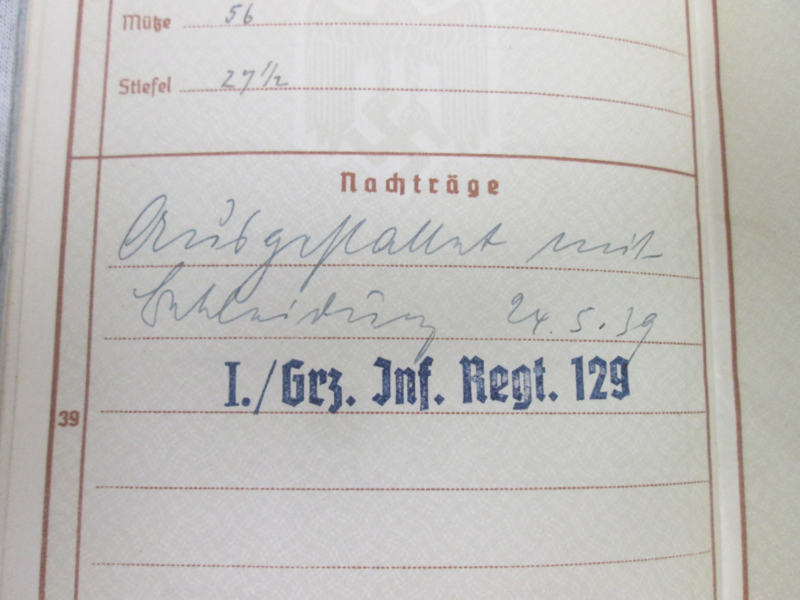 Mütze 56
Stiefel 27 1/2
Nachträge
Ausgestattet mit
Bekleidung 24.5.39
I./Grz. Inf. Regt. 129
39